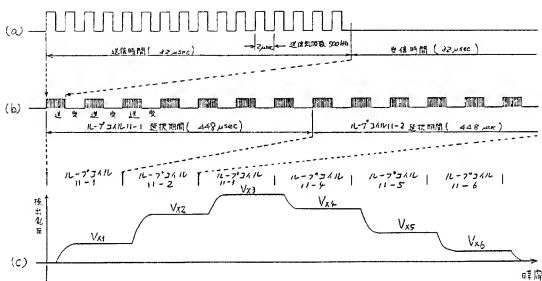 (a)
2μsec 送信周波数 500kHz
送信時間(32μsec) 受信時間(32μsec)
(b)
送 受 送 受 送 受
ループコイル11-1 選択期間(448μsec) ループコイル11-2 選択期間(448μsec)
ループコイル11-1 ループコイル11-2 ループコイル11-3 ループコイル11-4 ループコイル11-5 ループコイル11-6
検出電圧
Vx1 Vx2 Vx3 Vx4 Vx5 Vx6
(c)
時間